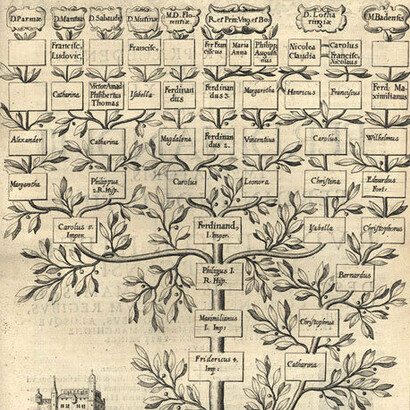 D. Parmæ
D. Mantuæ
D. Sabaudiæ
D. Mutinæ
M. D. Flo-
rentiæ
R. et Prin. Ung. et Bo
D. Lotha
ringiæ
M. Badensis
Francisc,
Ludovic,
Francisc,
Fer Fran
ciscus
Maria
Anna
Philipp
Augustinus
Nicolea
Claudia
Carolus
Francisc,
Nicolaus
Catharina
Victor Amad
Philibertus
Thomas
Isabella
Ferdinan
dus
Ferdinan
dus 3.
Margaretha
Henricus
Franciscus
Ferd:
Maximilianus
Alexander
Catharina
Magdalena
Ferdinan
dus 2.
Vincentius
Carolus
Wilhelmus
Margaretha
Philippus
2 R. Hisp.
Carolus
Leonora
Christina
Eduardus
Fort:
Carolus 5.
Imper.
Ferdinand,
I. Imper.
Isabella
Christophorus
Philippus I
R. Hisp.
Bernardus
Maximilianus
I. Imp:
Christophorus
Fridericus 4.
Imper.
Catharina